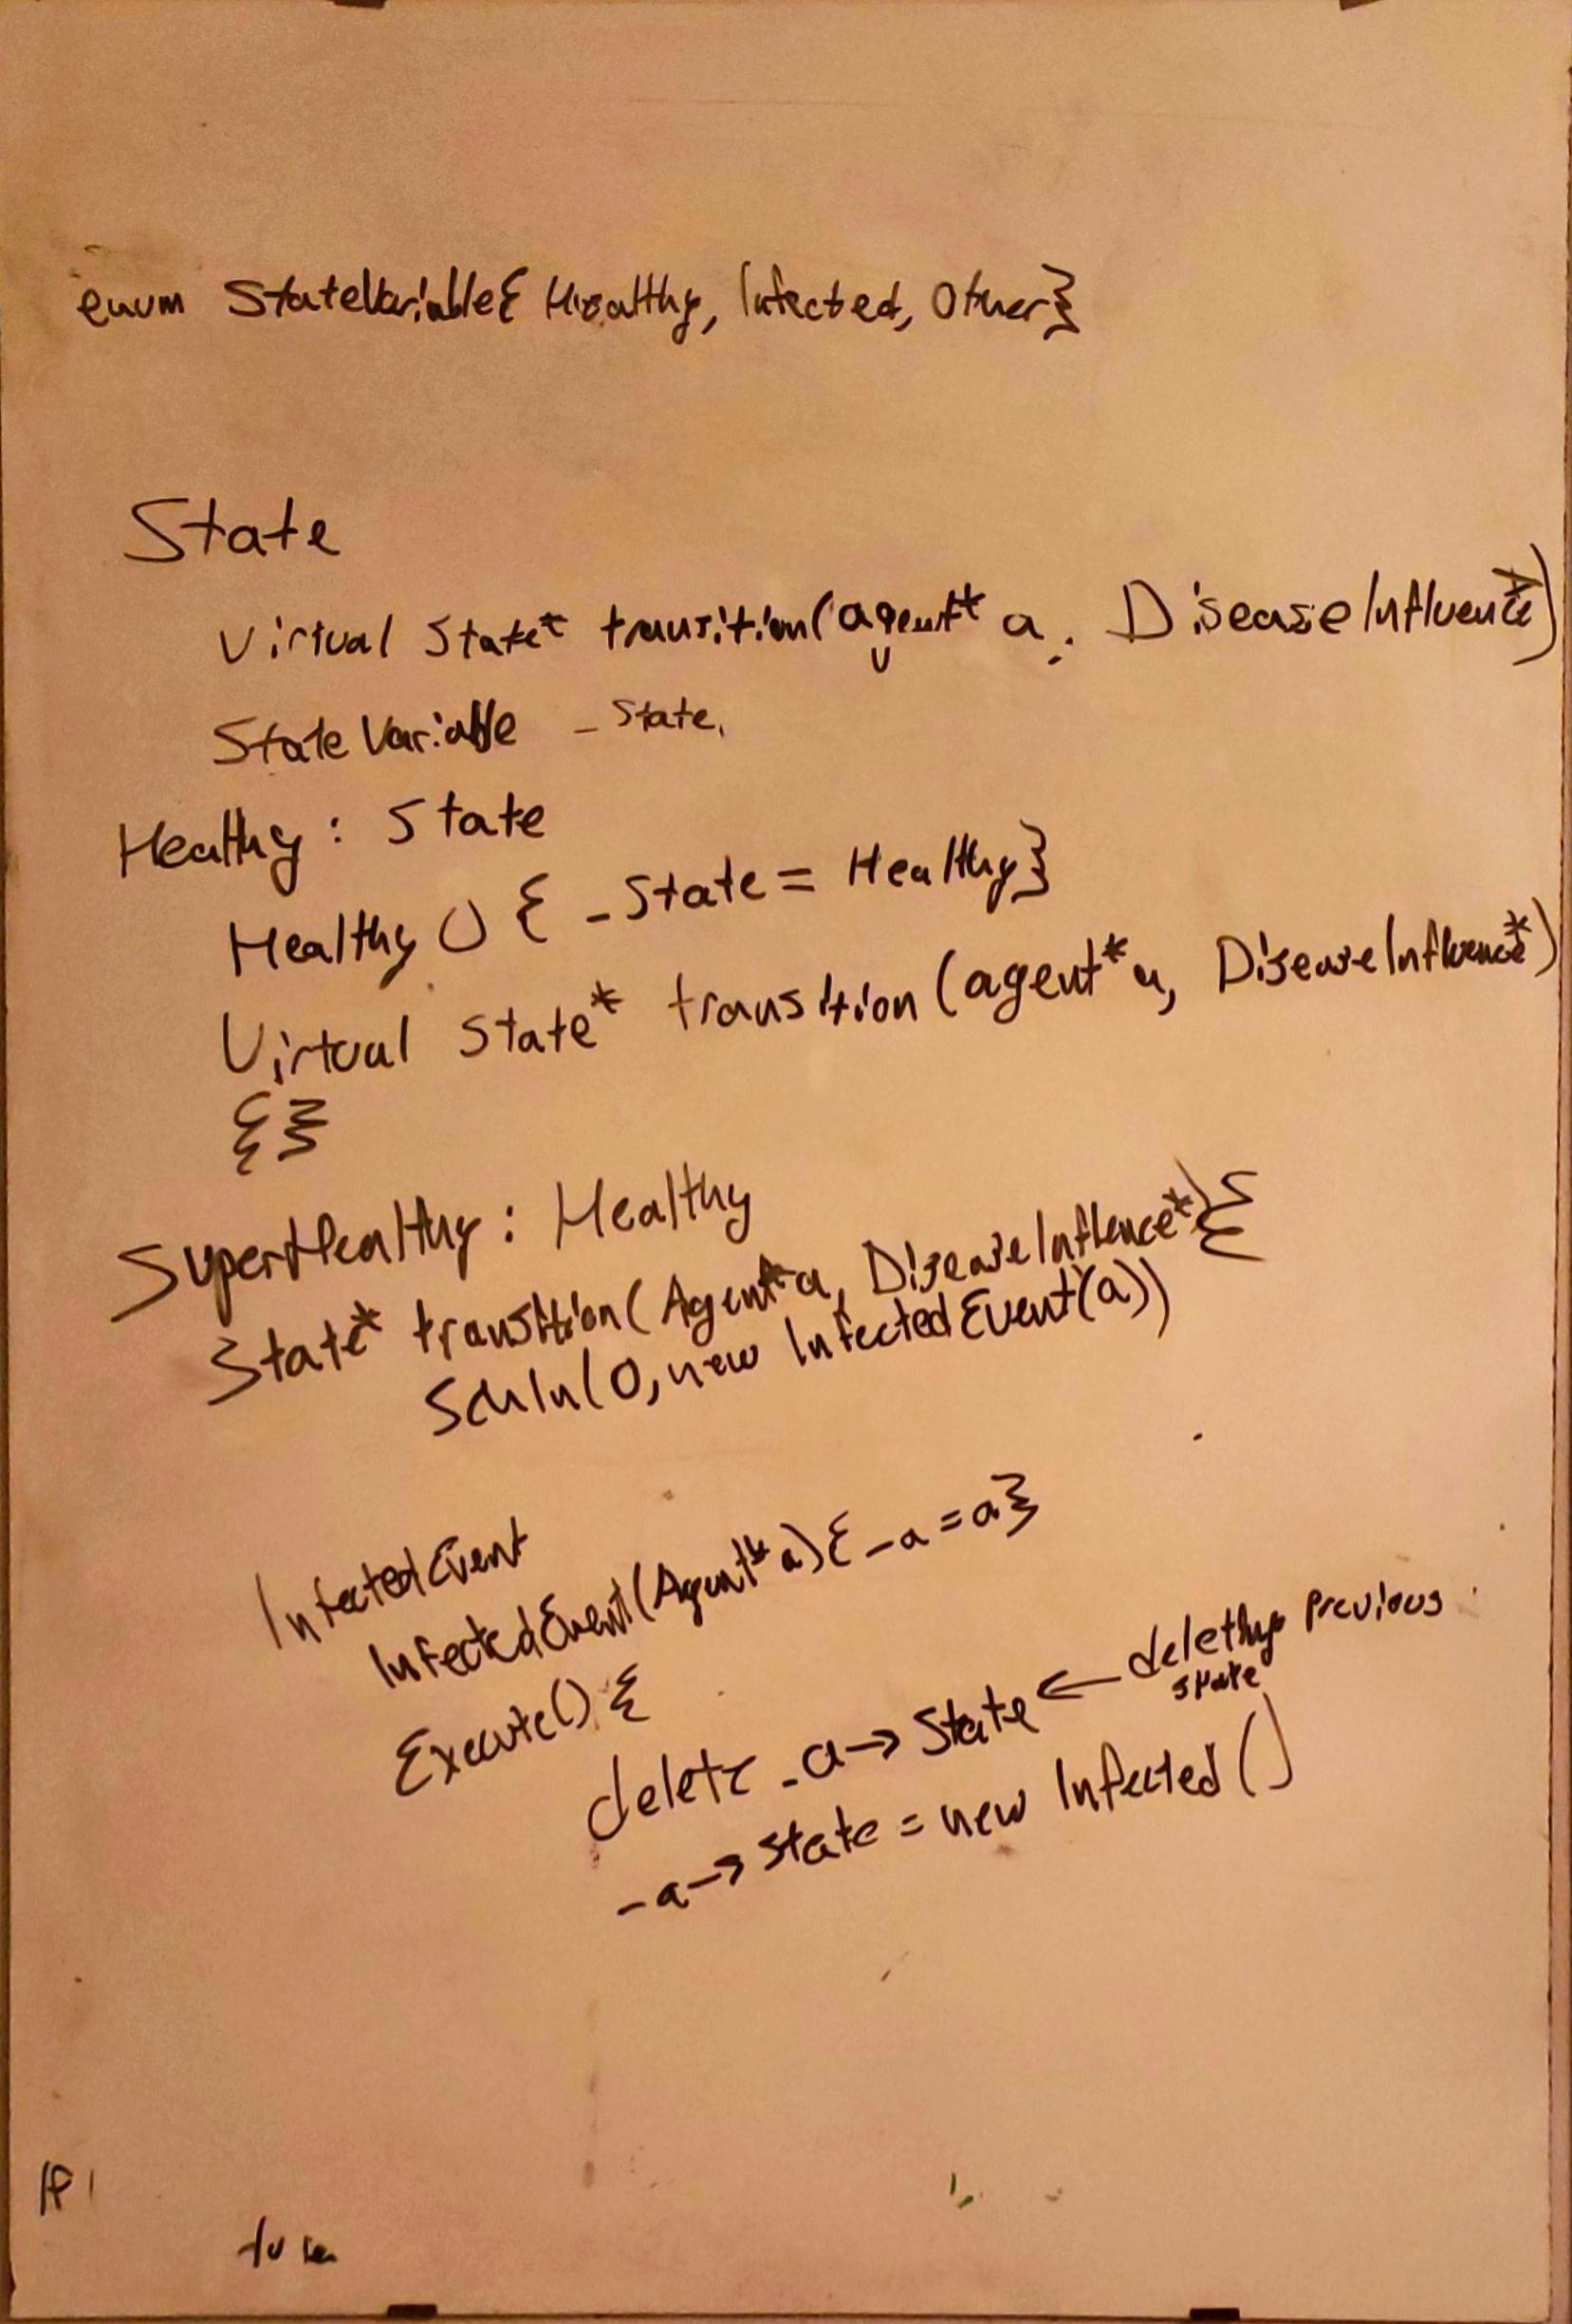 enum StateVariable{ Healthy, Infected, Other}
State
Virtual State* transition(agent* a, DiseaseInfluence*)
StateVariable _State,
Healthy : State
Healthy () { _State = Healthy}
Virtual State* transition (agent* a, DiseaseInfluence*)
{}
SuperHealthy : Healthy
State* transition( Agent* a, DiseaseInfluence*){
SchIn( 0, new InfectedEvent(a))
InfectedEvent
InfectedEvent(Agent* a) { _a = a}
Execute() {
delete _a-> State ← deleting previous
state
_a-> State = new Infected ()